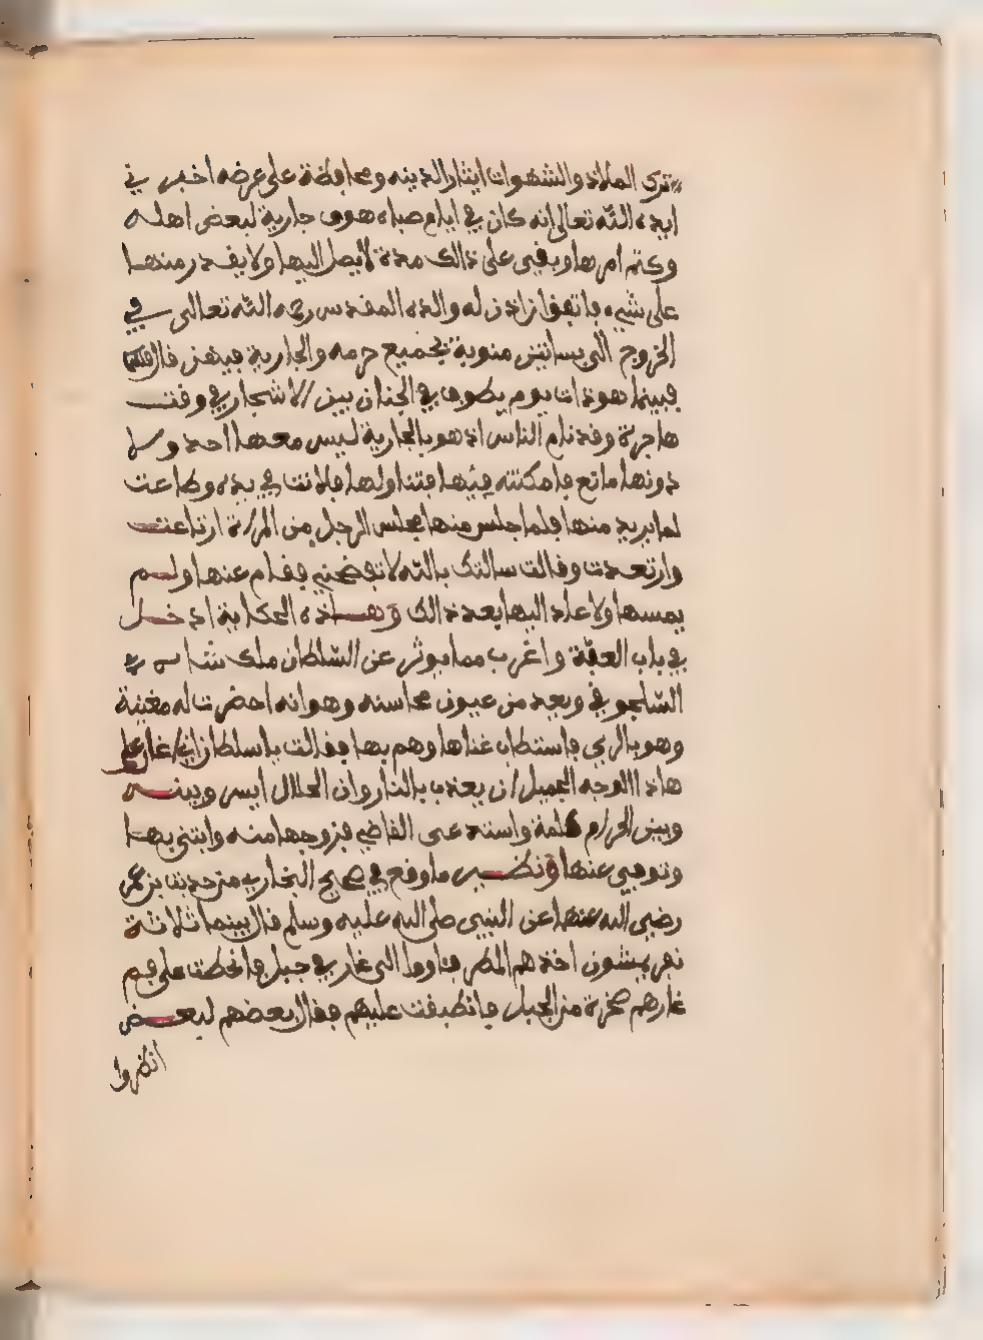 ترك الملاذ والشهوات ايثارا لدينه ومحافظة على عرضه اخبرني
ايده الله تعالى انه كان في ايام صباه هوى جارية لبعض اهله
وكتم امرها وبقي على ذالك مدة لا يصل اليها ولا يقدر منها
على شيء فاتفق ان اذن له والده المقدس رحمه الله تعالى في
الخروج الى بساتين منوبة بجميع حرمه والجارية فيهن قال
فبينما هو ذات يوم يطوف في الجنان بين الاشجار في وقت
هاجرة وقد نام الناس اذ هو بالجارية ليس معها احد ولا
دونها مانع فامكنته فيها فتناولها فلانت في يده وطاعت
لما يريد منها فلما جلس منها مجلس الرجل من المراة ارتاعت
وارتعدت وقالت سالتك بالله لا تفضحني فقام عنها ولم
يمسها ولا عاد اليها بعد ذالك وهاذه الحكاية ادخل
في باب العفة واغرب مما يوثر عن السلطان ملك شاه
السلجوقي ويعد من عيون محاسنه وهو انه احضرت له مغنية
وهو بالري فاستطاب غناها وهم بها فقالت يا سلطان اني اغار على
هاذا الوجه الجميل ان يعذب بالنار وان الحلال ايسر وبينه
وبين الحرام كلمة واستدعى القاضي فزوجها منه وابتنى بها
وتوفي عنها ونظير ما وقع في صحيح البخاري من حديث بن عمر
رضي الله عنهما عن النبي صلى الله عليه وسلم قال بينما ثلاثة
نفر يمشون اخذهم المطر فاووا الى غار في جبل فانحطت على فم
غارهم صخرة من الجبل فانطبقت عليهم فقال بعضهم لبعض
انظروا